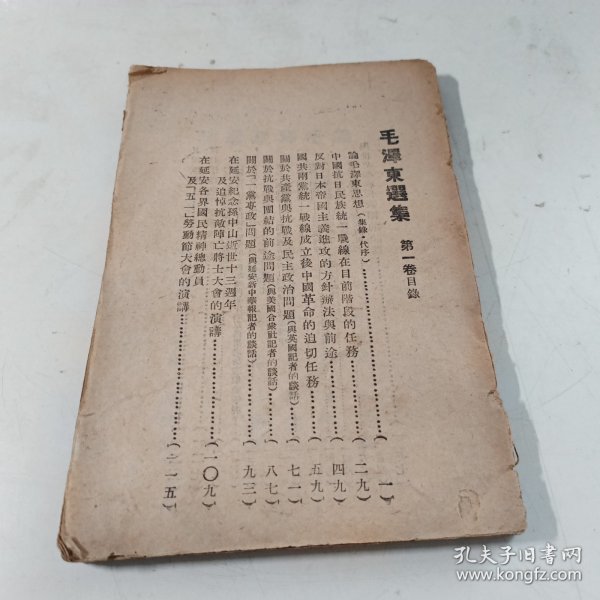 毛澤東選集 第一卷目錄
論毛澤東思想（集錄·代序）……（一）
中國抗日民族統一戰線在目前階段的任務……（二九）
反對日本帝國主義進攻的方針辦法與前途……（四九）
國共兩黨統一戰線成立後中國革命的迫切任務……（五九）
關於共產黨與抗戰及民主政治問題（與英國記者的談話）……（七一）
關於抗戰與團結的前途問題（與美國合衆社記者的談話）……（八七）
關於「一黨專政」問題（與延安新中華報記者的談話）……（九三）
在延安紀念孫中山逝世十三週年
及追悼抗敵陣亡將士大會的演講……（一〇九）
在延安各界國民精神總動員
及「五一」勞動節大會的演講……（一一五）
孔夫子旧书网
www.kongfz.com